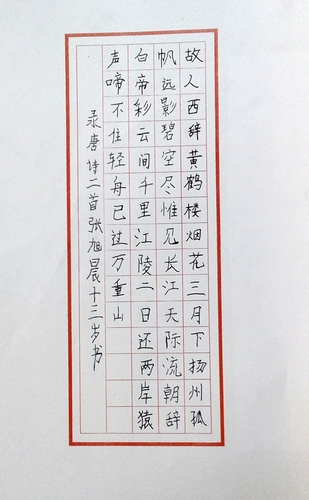 故人西辞黄鹤楼烟花三月下扬州孤
帆远影碧空尽惟见长江天际流朝辞
白帝彩云间千里江陵二日还两岸猿
声啼不住轻舟已过万重山
录唐诗二首张旭晨十三岁书